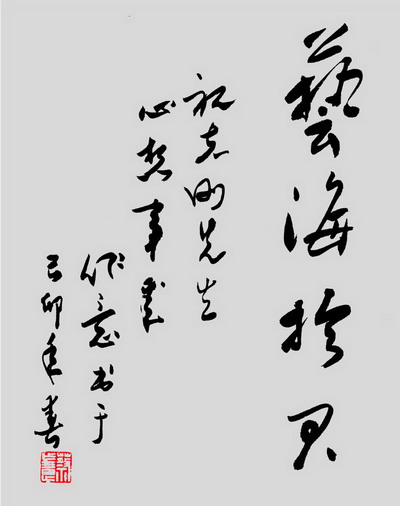 藝海拾贝
祝志刚先生
心想事成
作意书于
己卯年春